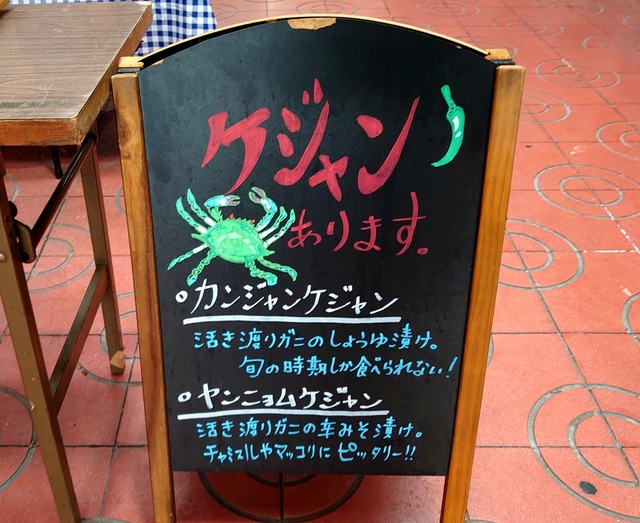 ケジャン
あります。
カンジャンケジャン
活き渡りガニのしょうゆ漬け。
旬の時期しか食べられない!
ヤンニョムケジャン
活き渡りガニの辛みそ漬け。
チャミスルやマッコリにピッタリー!!